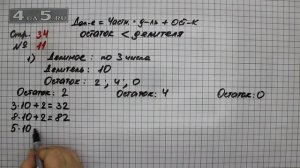 4a5.ru
Дел-е = Частн. · д-ль + Ост-к
Стр. 34
остаток < делителя
№ 11
1) Делимое: по 3 числа
Делитель: 10
Остаток: 2, 4, 0
Остаток: 2
Остаток: 4
Остаток: 0
3·10+2=32
8·10+2=82
5·10